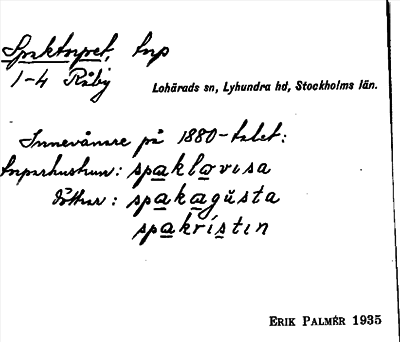 Spaktorpet, torp
1-4 Råby
Lohärads sn, Lyhundra hd, Stockholms län.
Innevånare på 1880-talet:
torparhustrun: spaklovisa
döttrar: spakagŭsta
spakrístin
ERIK PALMÉR 1935